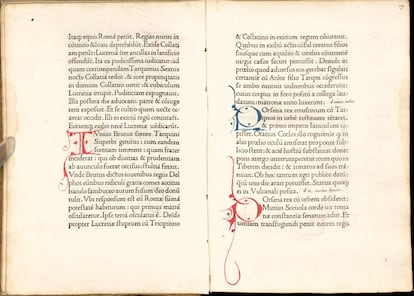 Itaq; equis Romã petiit. Regias nurus in
cõuiuio & luxu depręhẽdit. Exide Collati
am petit: Lucretiã iter ancillas in lanificio
offendit. Ita ea pudicissima iudicatur: ad
quam corrumpendam Tarquinius Sextus
nocte Collatiã rediit: & iure propinquitatis
in domum Collatini uenit: & cubiculum
Lucretię irrupit. Pudicitiam expugnauit.
Illa postera die aduocatis patre & cõiuge
rem exposuit. Et se cultro quem ueste texe
rat occidit. Illi in exitiũ regũ coniurarunt.
Eorumq; exilio necẽ Lucretię uidicarũt.
IUnius Brutus sorore Tarquinii
Superbi genitus: cum eandem
fortunam timeret: quam frater
inciderat: qui ob diuitias & prudentiam
ab auunculo fuerat occisus: stultũ finxit.
Vnde Brutus dictus: iuuenibus regis Del
phos eũtibus ridiculi gratia comes ascitus
baculo sambuceo aurum fusum deo donũ
tulit. Vbi responsum est eũ Romę sũmã
potestatẽ habiturum: qui primus matrẽ
oscularetur. Ipse terrã osculatus ẽ. Deide
propter Lucretię stuprum cũ Tricipitino
& Collatino in exitium regum cõiurauit.
Quibus in exiliũ actis: cõsul creatus filios
suosque cum aquiliis & uitelliis cõiurarãt
uirgis cæsos securi percussit. Deinde in
prœlio quod aduersus eos gerebat: sigulari
certamine cũ Arũte filio Tarqnii cõgressus
ẽ: ambo mutuis uulneribus occiderunt:
cuius corpus in foro positũ a collega lau
datum matronę anno luxerunt.
POrsena rex etruscorum cũ Tar
qnios in urbẽ restituere tẽtaret:
& primo impetu Ianiculũ cæ
pisset. Oratius Cocles illo cognomine q; in
alio prœlio oculũ amiserat pro ponte subli
cio stetit: & aciẽ hostiũ sustinuit: donec
pons a tergo interrumperetur: cum quo in
Tiberim decidit: & armatus ad suos trã
nauit. Ob hoc tantum agri publice datũ:
qtũ uno die arari potuisset. Statua quoq;
ei in Vulcanali posita.
POrsena rex cũ urbem obsideret:
Mutius Sceuola corde uir roma
nę constantię senatum adiit. Et
ueniam transfugiendi petiit necem regis